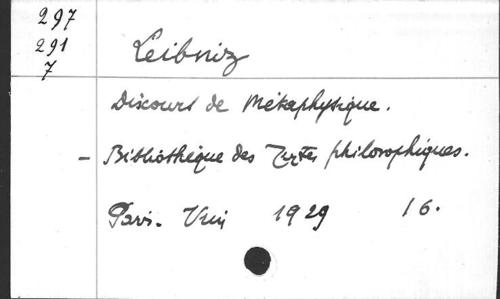 297
291
7
Leibniz
Discours de Métaphysique.
- Bibliothèque des Textes philosophiques.
Paris. Vrin 1929 16.